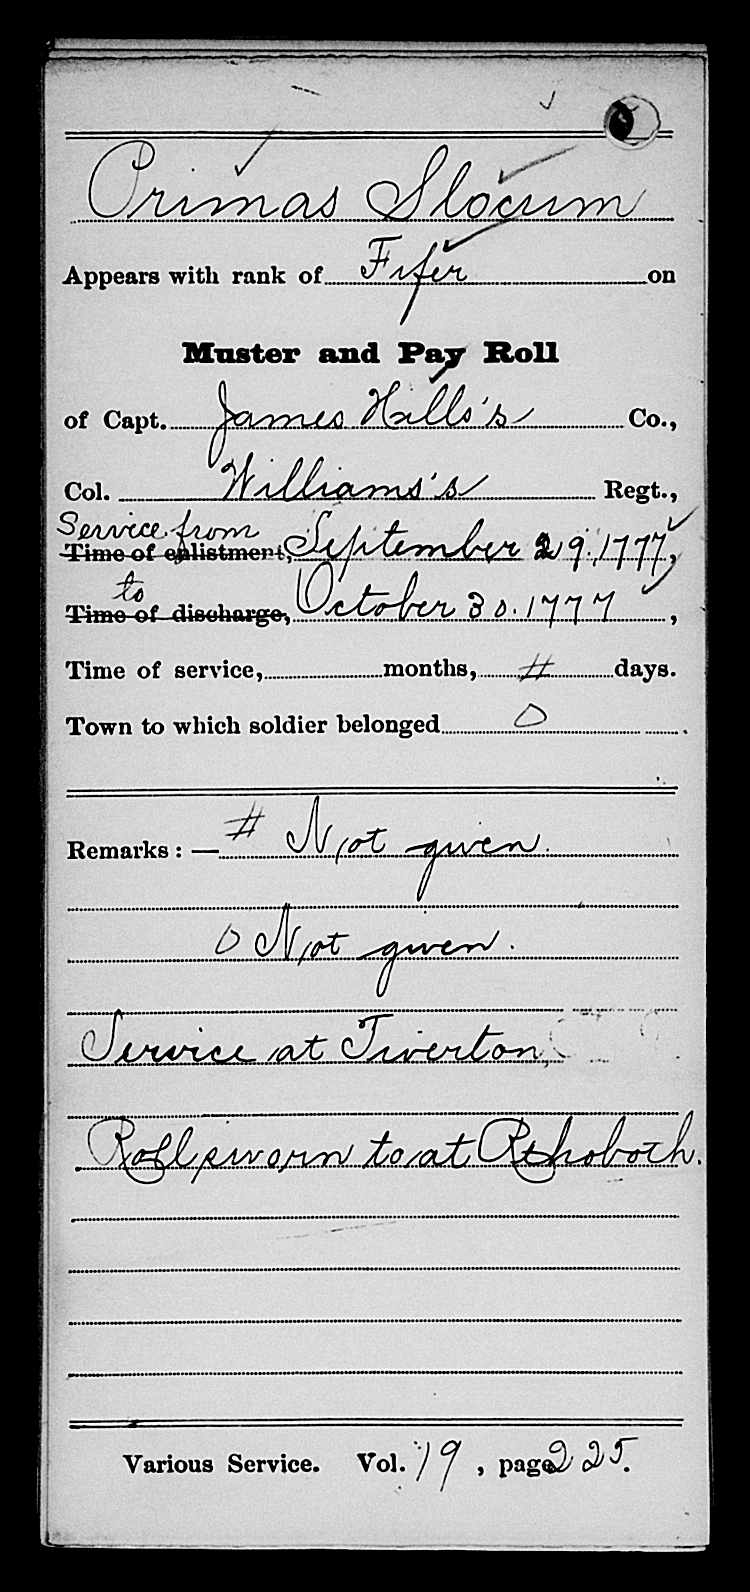 Primas Slocum
Appears with rank of Fifer on
Muster and Pay Roll
of Capt. James Hills's Co.,
Col. Williams's Regt.,
Service from
Time of enlistment, September 29, 1777,
to
Time of discharge, October 30. 1777,
Time of service, months, # days.
Town to which soldier belonged 0 .
Remarks: — # Not given.
0 Not given.
Service at Tiverton,
Roll sworn to at Rehoboth.
Various Service. Vol. 19, page 225.